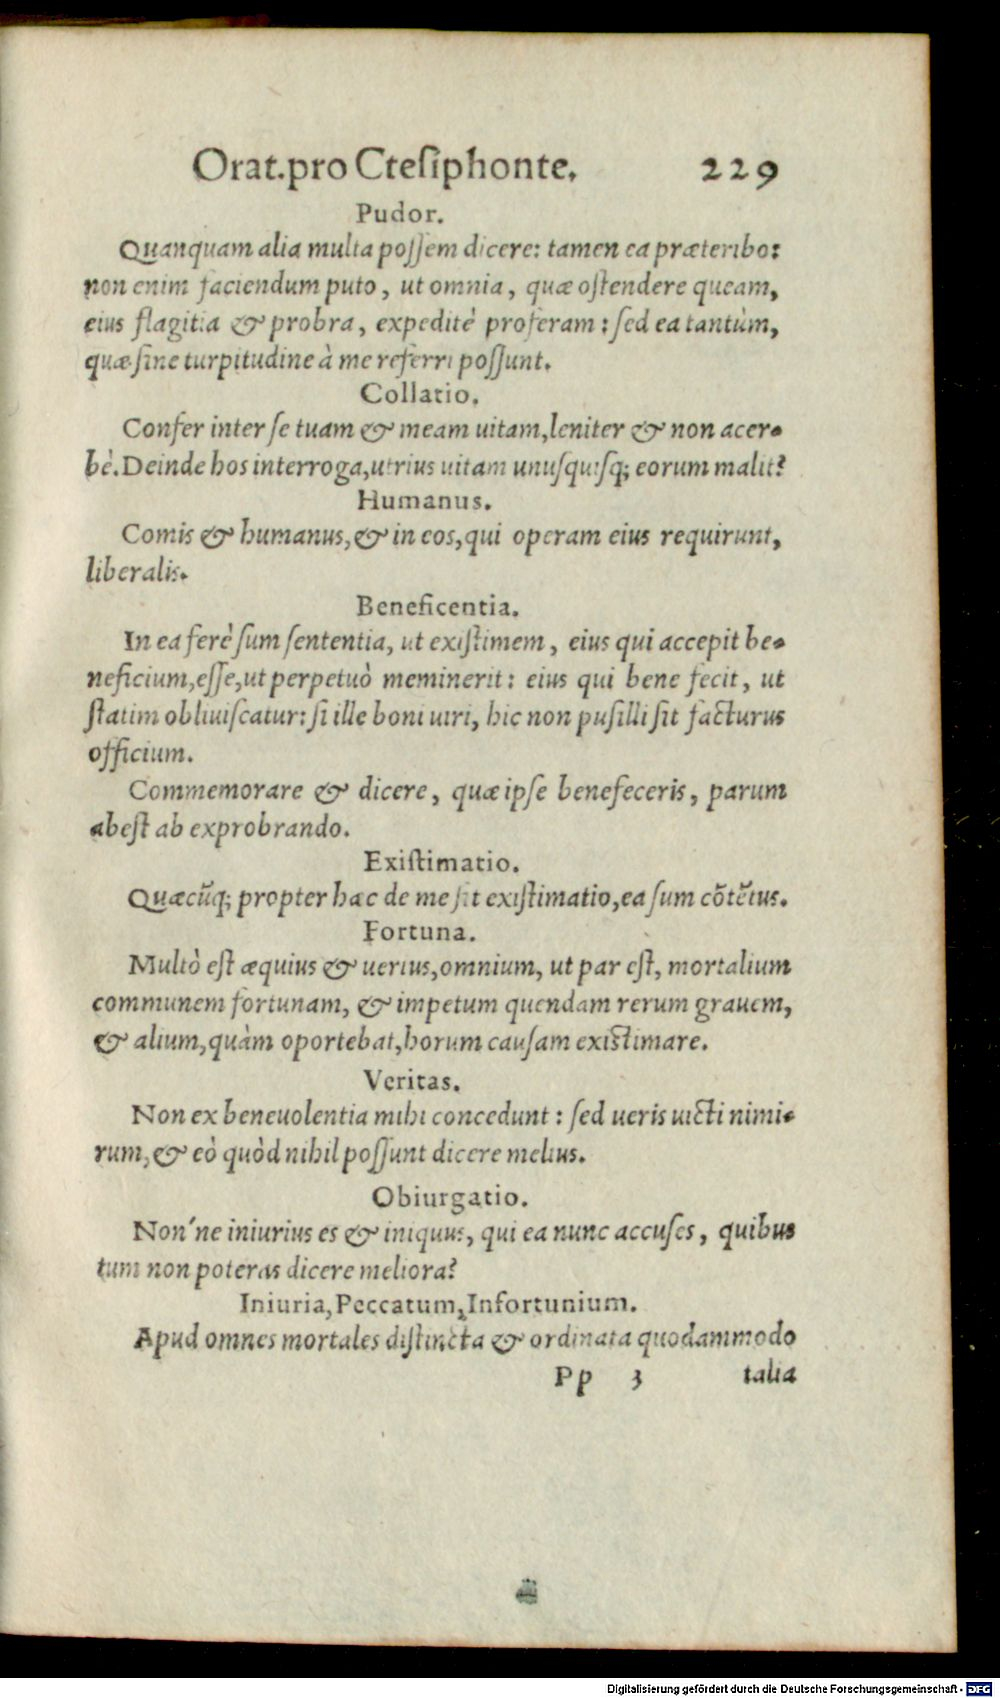 Orat.pro Ctesiphonte. 229
Pudor.
Quanquam alia multa possem dicere: tamen ea præteribo:
non enim faciendum puto, ut omnia, quæ ostendere queam,
eius flagitia & probra, expeditè proferam: sed ea tantùm,
quæ sine turpitudine à me referri possunt.
Collatio.
Confer inter se tuam & meam uitam, leniter & non acer-
bè. Deinde hos interroga, utrius uitam unusquisq; eorum malit?
Humanus.
Comis & humanus, & in eos, qui operam eius requirunt,
liberalis.
Beneficentia.
In ea ferè sum sententia, ut existimem, eius qui accepit be-
neficium, esse, ut perpetuò meminerit: eius qui bene fecit, ut
statim obliuiscatur: si ille boni uiri, hic non pusilli sit facturus
officium.
Commemorare & dicere, quæ ipse benefeceris, parum
abest ab exprobrando.
Existimatio.
Quæcũq; propter hæc de me sit existimatio, ea sum cõtẽtus.
Fortuna.
Multò est æquius & uerius, omnium, ut par est, mortalium
communem fortunam, & impetum quendam rerum grauem,
& alium, quàm oportebat, horum causam existimare.
Veritas.
Non ex beneuolentia mihi concedunt: sed ueris uicti nimi-
rum, & eò quòd nihil possunt dicere melius.
Obiurgatio.
Non'ne iniurius es & iniquus, qui ea nunc accuses, quibus
tum non poteras dicere meliora?
Iniuria, Peccatum, Infortunium.
Apud omnes mortales distincta & ordinata quodammodo
Pp 3 talia
Digitalisierung gefördert durch die Deutsche Forschungsgemeinschaft - DFG